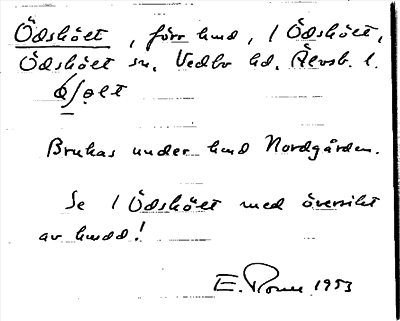 Ödskölt, förr hmd, 1 Ödskölt,
Ödskölt sn, Vedbo hd, Älvsb. l.
Brukas under hmd Nordgården.
Se 1 Ödskölt med översikt
av hmdd!
E. 1953